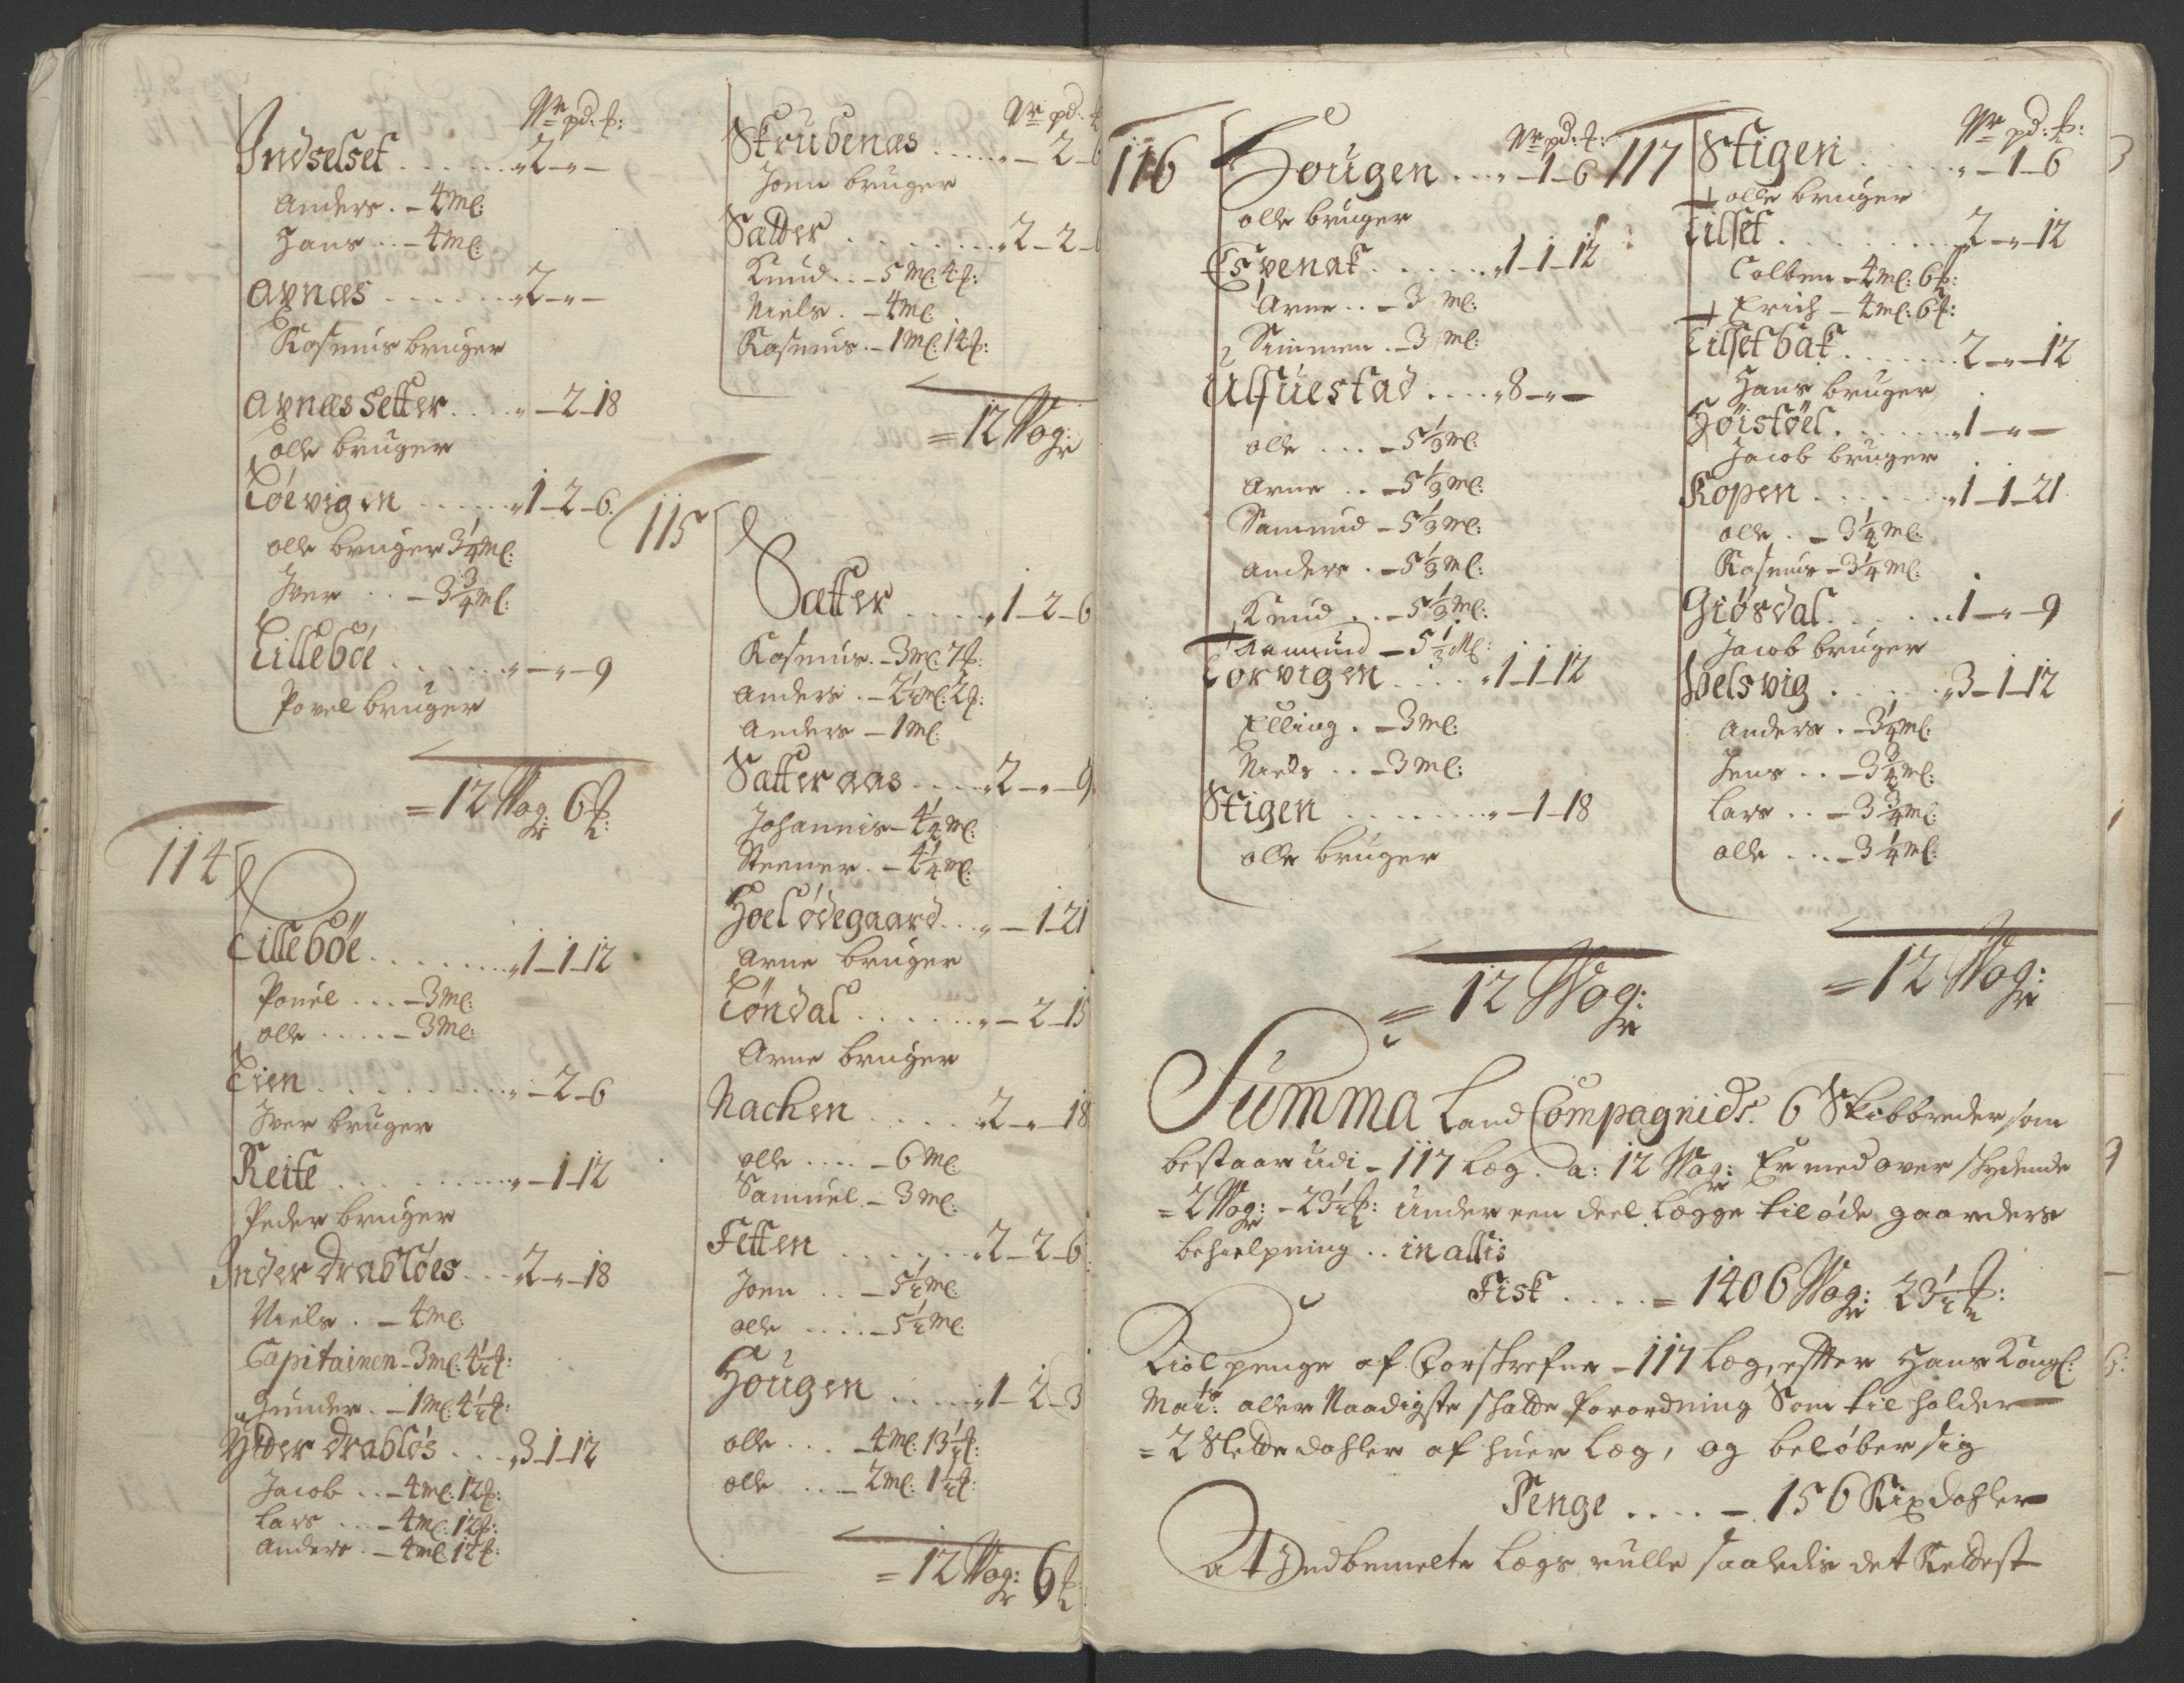 Wr pd: ℔:
Indselset . . . . . . „2-„-
Anders . - 4 ml:
Hans . . - 4 ml:
Aynæs . . . . . . „2-„-
Rasmus bruger
Aynæs Setter . . . . „-2-18
olle bruger
Løevigen . . . . . „1-2-6.
olle bruger 3¼ ml:
Iver . . - 3¾ ml:
Lilleböe . . . . . . „-„-9
Povel bruger
= 12 Wog: 6 ℔:
114
Lilleböe . . . . . . . „1-1-12
Pouel . . . - 3 ml:
olle . . . . . - 3 ml:
Lien . . . . . . . . „-2-6
Iver bruger
Reite . . . . . . . . „-1-12
Peder bruger
Inder drabløes . . . „2-„-18
Niels . - 4 ml:
Capitainen - 3 ml: 4½ ℔:
Gunder . - 1 ml: 4½ ℔:
Ytter drabløs . . . „3-1-12
Jacob . . - 4 ml: 12 ℔:
Lars . . . - 4 ml: 12 ℔:
Anders . - 4 ml 12 ℔:
Wr pd: ℔
Skrubenæs . . . . . „-2-6
Joen bruger
Sætter . . . . . . . . „2-2-
Knud . . - 5 ml: 4 ℔:
Niels . - 4 ml:
Rasmus . - 1 ml: 14 ℔:
= 12 Wog:
115
Sætter . . . . . „1-2-6
Rasmus . - 3 ml: 7 ℔:
Anders . - 2½ ml: 2 ℔:
Anders - 1 ml:
Sætter aas . . . . „2-„-9
Johannis - 4¼ ml:
Steener . - 4¼ ml:
Hoel ødegaard . . . „-1-21
Arne bruger
Löndal . . . . . . „-2-15
Arne bruger
Nachen . . . . . „2-„-18
olle . . . . - 6 ml:
Samuel - 3 ml:
Fetten . . . . . . „2-2-6
Joen . . - 5½ ml:
olle . . . . - 5½ ml:
Hougen . . . . . „1-2-3
olle . . . - 4 ml: 13½ ℔:
olle . . . - 2 ml: 1½ ℔:
= 12 Wog: 6 ℔:
116
Wr pd: ℔:
Hougen . . . „-1-6
olle bruger
Espenak . . . . . . „1-1-12
Arne . . - 3 ml:
Simmen . - 3 ml:
Ulfuestad . . . . „8-„-
olle . . . - 5⅓ ml:
Arne . . - 5⅓ ml:
Samund - 5⅓ ml:
Anders . - 5⅓ ml:
Knud . . - 5⅓ ml:
Aamund - 5⅓ ml:
Torvigen . . . . „1-1-12
Elling . - 3 ml:
Niels . . - 3 ml:
Stigen . . . . . . . „-1-18
olle bruger
= 12 Wog:
117
Wr pd: ℔:
Stigen . . . . . . „-1-6
olle bruger
Lilset . . . . . . . . 2-„-12
Colben - 4 ml: 6 ℔:
Erich - 4 ml: 6 ℔:
Lilset bak . . . . . . 2-„-12
Hans bruger
Höistöel . . . . . . „1-„-
Jacob bruger
Kopen . . . . . . . „1-1-21
olle . - 3¼ ml:
Rasmus - 3¼ ml:
Giørdal . . . . . . „1-„-9
Jacob bruger
Welsvig . . . . . . „3-1-12
Anders . - 3¼ ml:
Jens . . - 3¾ ml:
Lars . . - 3¾ ml:
olle . . . - 3¼ ml:
= 12 Wog:
Summa Land Compagnids. 6 Skibbreder, som
bestaar udi - 117 Læg. a: 12 Wog: Er med over schydende
= 2 Wog: - 23½ ℔: under een deel Lægge til øde gaarders
behielpning . . in allis
Fisk . . . . . = 1406 Wog: 23½ ℔:
Kiol penge af Forskrefne - 117 Læg, efter Hans Kongl:
Mai:ts aller Naadigste schatte forordning Som til holder
= 2 Slette dahler af huer Læg, og beløber sig
Penge . . . . - 156 Rixdahler
At Indbemelte Lægs rulle saaledis det Rettest